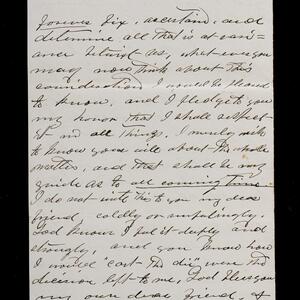 forever fix, ascertain, and
determine all that is at vari-
ance betwixt us, what ever you
may now think about this
consideration I would be pleased
to know, and I pledge to you
my honor that I shall respect
it in all things. I merely wish
to know your will about the whole
matter, and that shall be my
guide as to all coming time.
I do not write this to you my dear
friend, coldly or unfeelingly.
God knows I feel it deeply and
strongly, and you know how
I would "cast the die" were the
decision left to me, God bless you
my own dear friend,